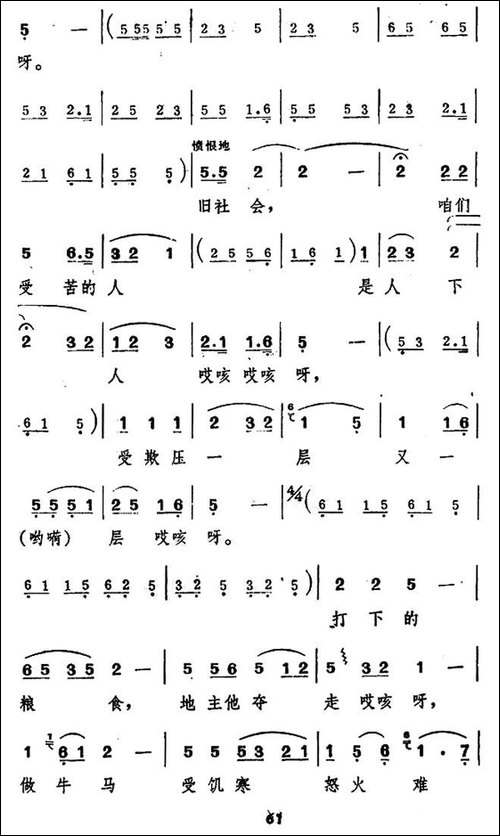 5 — | (5 555 5 5 | 2 3 5 | 2 3 5 | 6 5 6 5 |
呀。
5 3 2.1 | 2 5 2 3 | 5 5 1.6 | 5 5 5 3 | 2 3 2.1 |
愤恨地
2 1 6 1 | 5 5 5) | 5.5 2 | 2 — | 2 2 2 |
旧社会， 咱们
5 6.5 | 3 2 1 | (2 5 5 6 | 1 6 1) 1 | 2 3 2 |
受 苦的 人 是 人 下
2 3 2 | 1 2 3 | 2.1 1.6 | 5 — | (5 3 2.1 |
人 哎咳 哎咳 呀，
6 1 5) | 1 1 1 | 2 3 2 | 6 1 5 | 1 1 6 |
受 欺 压 一 层 又 一
5 5 5 1 | 2 5 1 6 | 5 — | 4/4 (6 1 1 5 6 1 5 |
(哟嗬) 层 哎咳 呀。
6 1 1 5 6 2 5 | 3 2 5 3 2 5) | 2 2 5 — |
打 下 的
6 5 3 5 2 — | 5 5 6 5 1 2 | 5 3 2 1 — |
粮 食， 地 主他 夺 走 哎咳 呀，
1 1 6 1 2 — | 5 5 5 3 2 1 | 1 5 6 6 1 . 7 |
做 牛 马 受 饥 寒 怒 火 难
61